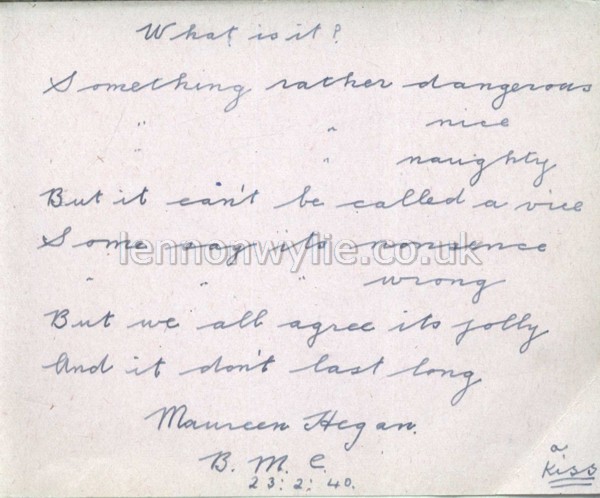 What is it?
Something rather dangerous
" " nice
" " naughty
But it can't be called a vice
Some say its nonsence
lennonwylie.co.uk
" " " wrong
But we all agree its jolly
And it don't last long
Maureen Hegan.
B. M. C.
23: 2: 40.
a
Kiss